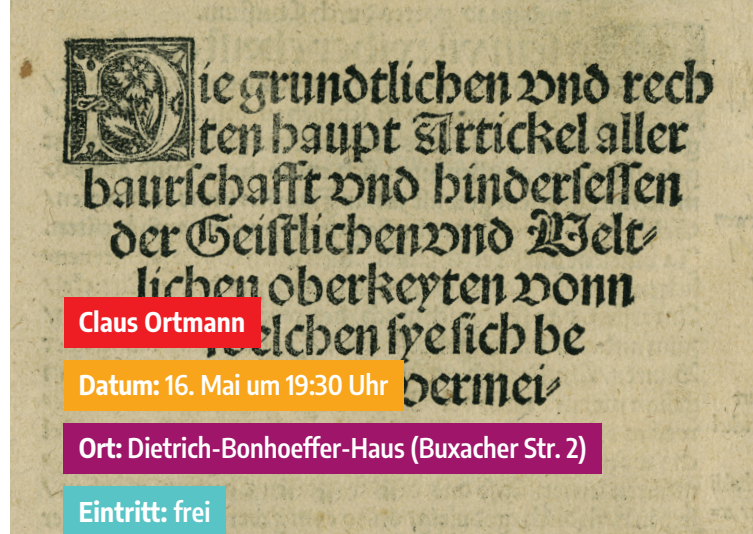 Die grundtlichen vnd rech
ten haupt Artickel aller
baurſchafft vnd hinderſeſſen
der Geiſtlichen vnd Welt⸗
lichen oberkeyten vonn
welchen ſye ſich be
vermei⸗
Claus Ortmann
Datum: 16. Mai um 19:30 Uhr
Ort: Dietrich-Bonhoeffer-Haus (Buxacher Str. 2)
Eintritt: frei